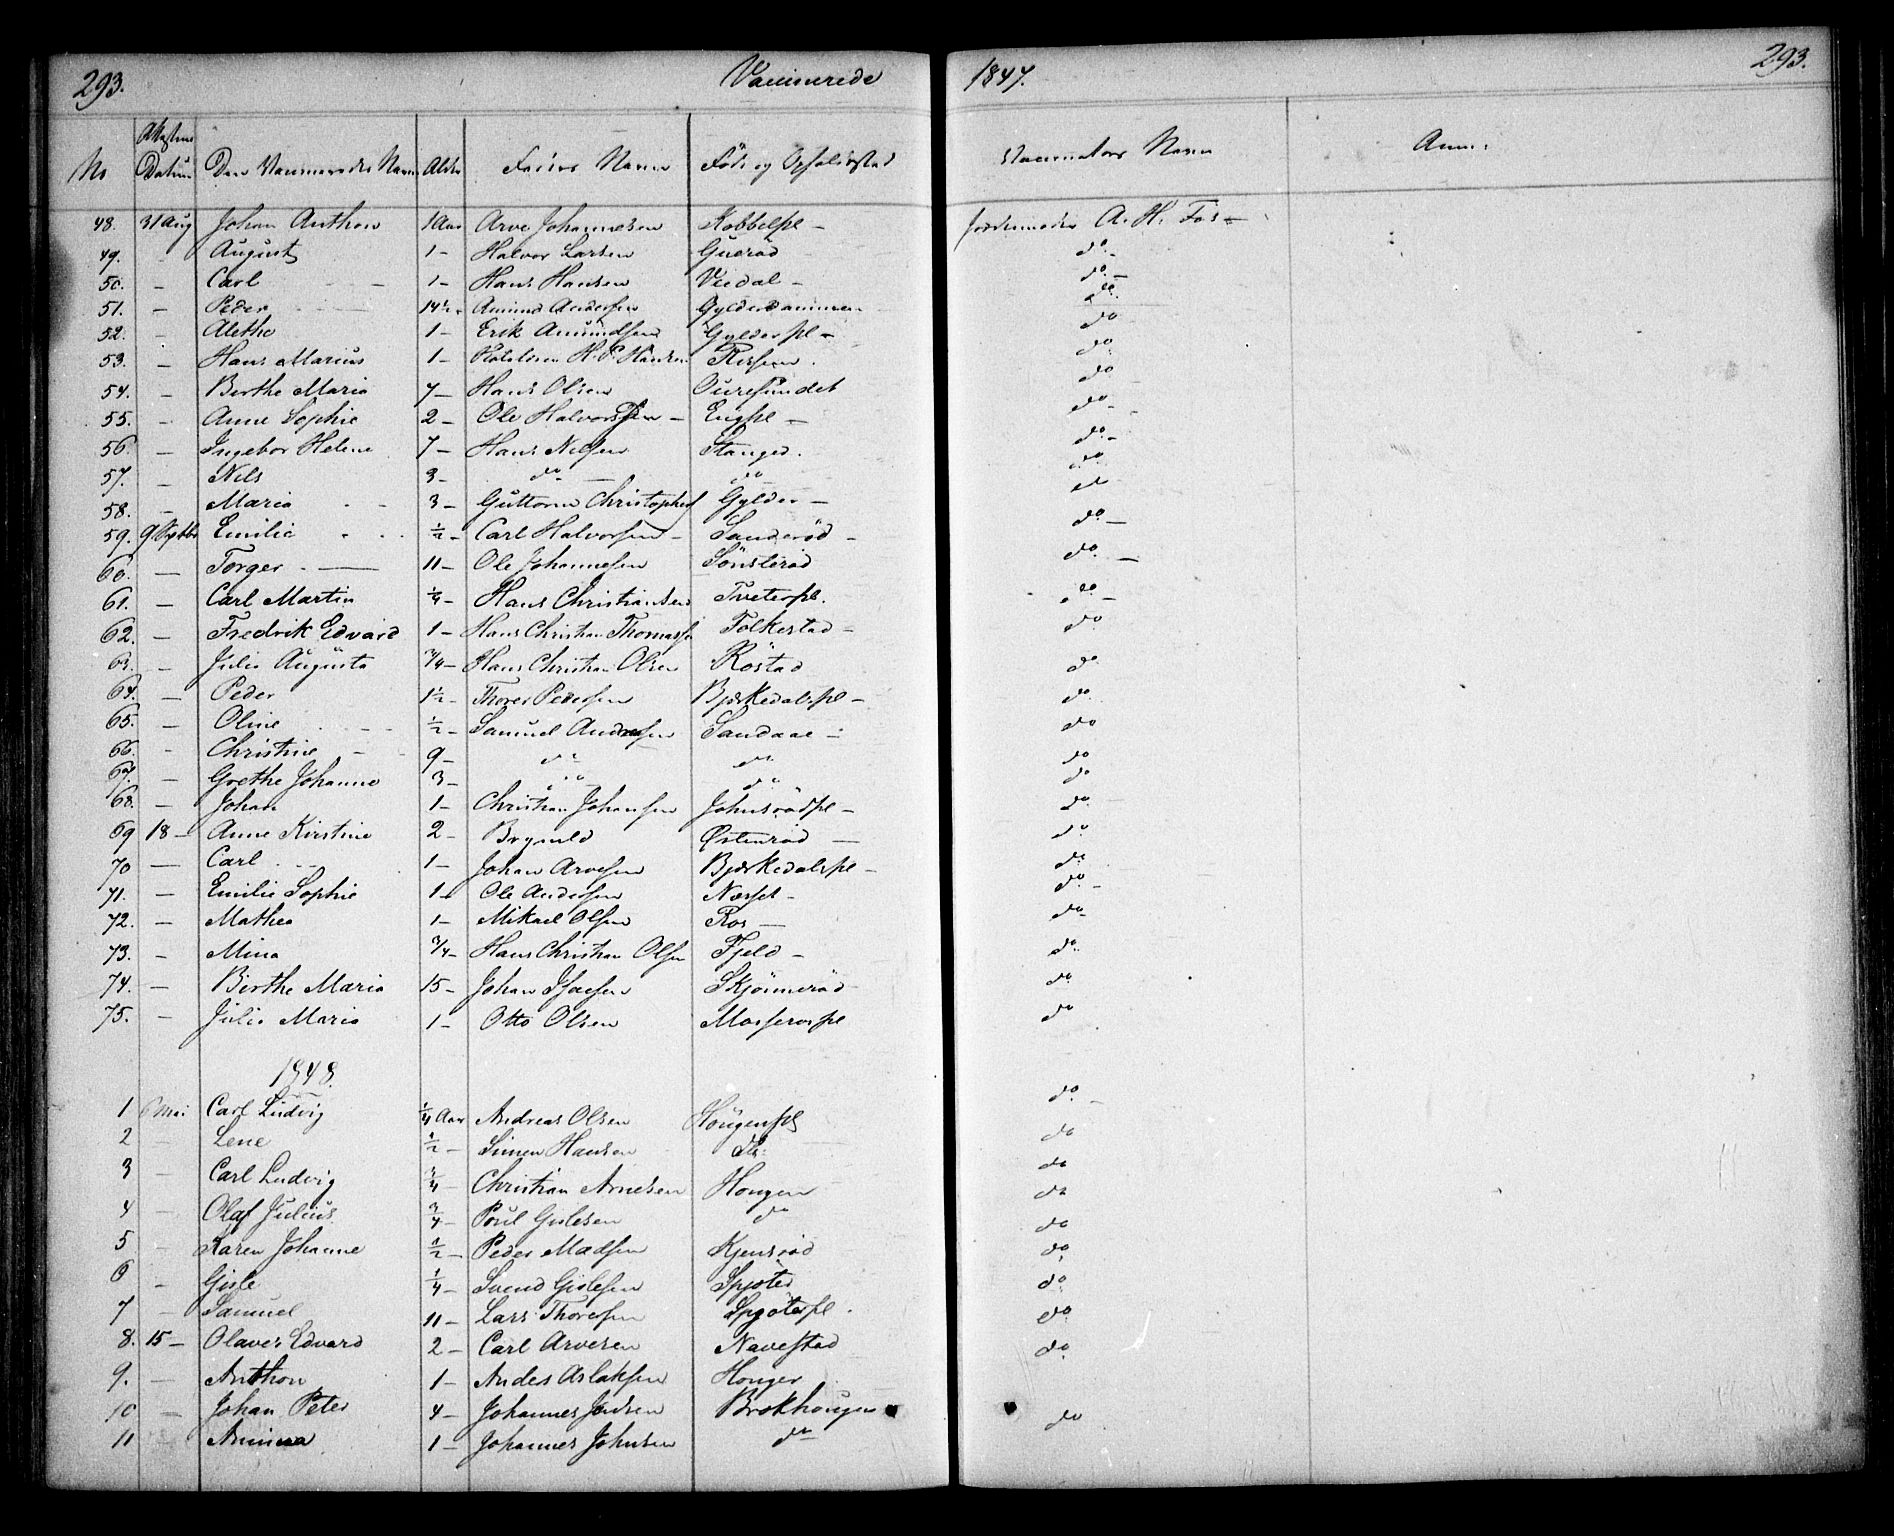 293. Vaccinerede 1847. 293.
No Attestens Datum Den Vaccineredes Navn Alder Faders Navn Föde og Opholdssted Vaccinators Navn Anm:
48. 31 Aug Johan Anthon 1 Aar Arve Johannesen Kobbelpl – Jordemoder A. H. Fos –
49. – August 1 – Halvor Larsen Gueröd do –
50. – Carl – – 1 – Hans Hansen Veedal – do –
51. – Peder – – 14½ – Amund Andersen Gylderdammen – do.
52. – Alethe 1 – Erik Amundsen Gylderpl – do
53. – Hans Marius 1 – H. P. Hansen do
54. – Berthe Maria 7 – Hans Olsen Ouresundet do
55. – Anne Sophie 2 – Ole Halvorsen – Engpl – do –
56. – Ingebor Helene 7 – Hans Nilsen Stanged. do –
57. – Nils 3 – do – do – do
58. – Maria – – 3 – Guttorm Christophers Gylder – do
59. 9 Septbr Emilie – – ½ – Carl Halvorsen – Sanderöd – do –
60. – Torger – — 11 – Ole Johannesen Sönsteröd do –
61. – Carl Martin ¼ – Hans Christiansen Tveterpl. do –
62. – Fredrik Edvard 1 – Hans Christian Thomassen Folkestad – do
63. – Julie Augusta ¾ – Hans Christian Olsen Röstad do
64. – Peder 1½ – Thorer Pedersen Bjerkedalspl – do
65. – Oline – – ½ – Samuel Andersen Sandaae – do
66. – Christine – 9 – do do do
67. – Grethe Johanne 3 – do do do
68. – Johan 1 – Christian Johansen Johnsrödpl – do
69 18 – Anne Kirstine 2 – Brynild Østenröd — do
70 — Carl – – 1 – Johan Arvesen Bjerkedalspl – do
71. – Emilie Sophie 1 – Ole Andersen Næsset – do –
72. – Mathea 1 – Mikael Olsen Ros — do –
73. – Mina ¾ – Hans Christian Olsen Fjeld – do
74. – Birthe Maria 15 – Johan Skjönneröd – do
75. – Julie Maria 1 – Otto Olsen Mosserospl do
1848.
1 6 Mai Carl Ludvig ¼ Aar Andreas Olsen Höugenpl do –
2 – Lene ½ – Simen Hansen do. do
3 – Carl Ludvig ¾ – Christian Arnesen Hougen do
4 – Olaf Julius ¾ – Poul Gislesen do do
5 – Karen Johanne ½ – Peder Madsen Kjensröd do
6 – Gisle ¼ – Svend Gislesen Spjöted do
7 – Samuel 11 – Lars Thoresen Spjötedpl. do
8. 15 – Olaves Edvard 2 – Carl Arvesen Navestad do
9. – Anthon 1 – Andes Aslaksen Houger do
10 – Johan Peter 4 – Johannes Brekhougen
11 – Aminna 1 – Johannes Johnsen do do